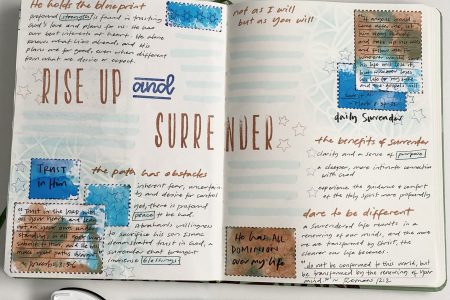 He holds the blueprint
profound strength is found in trusting
God's love and plans for us. He has
our best interests at heart. He alone
knows what lies ahead, and His
plans are for good, even when different
from what we desire or expect.
RISE UP and
SURRENDER
TRUST
in Him
Trust in the Lord with
all your heart
the path has obstacles
inherent fear, uncertainty
and desire for control
yet, there is profound
peace to be had.
Abraham's willingness
to sacrifice his son Isaac
demonstrated trust in God, a
surrender that brought
immense blessings!
not as I will
but as you will
daily Surrender
the benefits of surrender
clarity and a sense of purpose
a deeper, more intimate connection
with God
experience the guidance & comfort
of the Holy Spirit more profoundly
dare to be different
a surrendered life results in a
renewing of our minds, and the more
we are transformed by Christ, the
clearer our life becomes.
"do not be conformed to this world, but
be transformed by the renewing of your
mind." ~ Romans 12:2
He has ALL
DOMINION
over my life